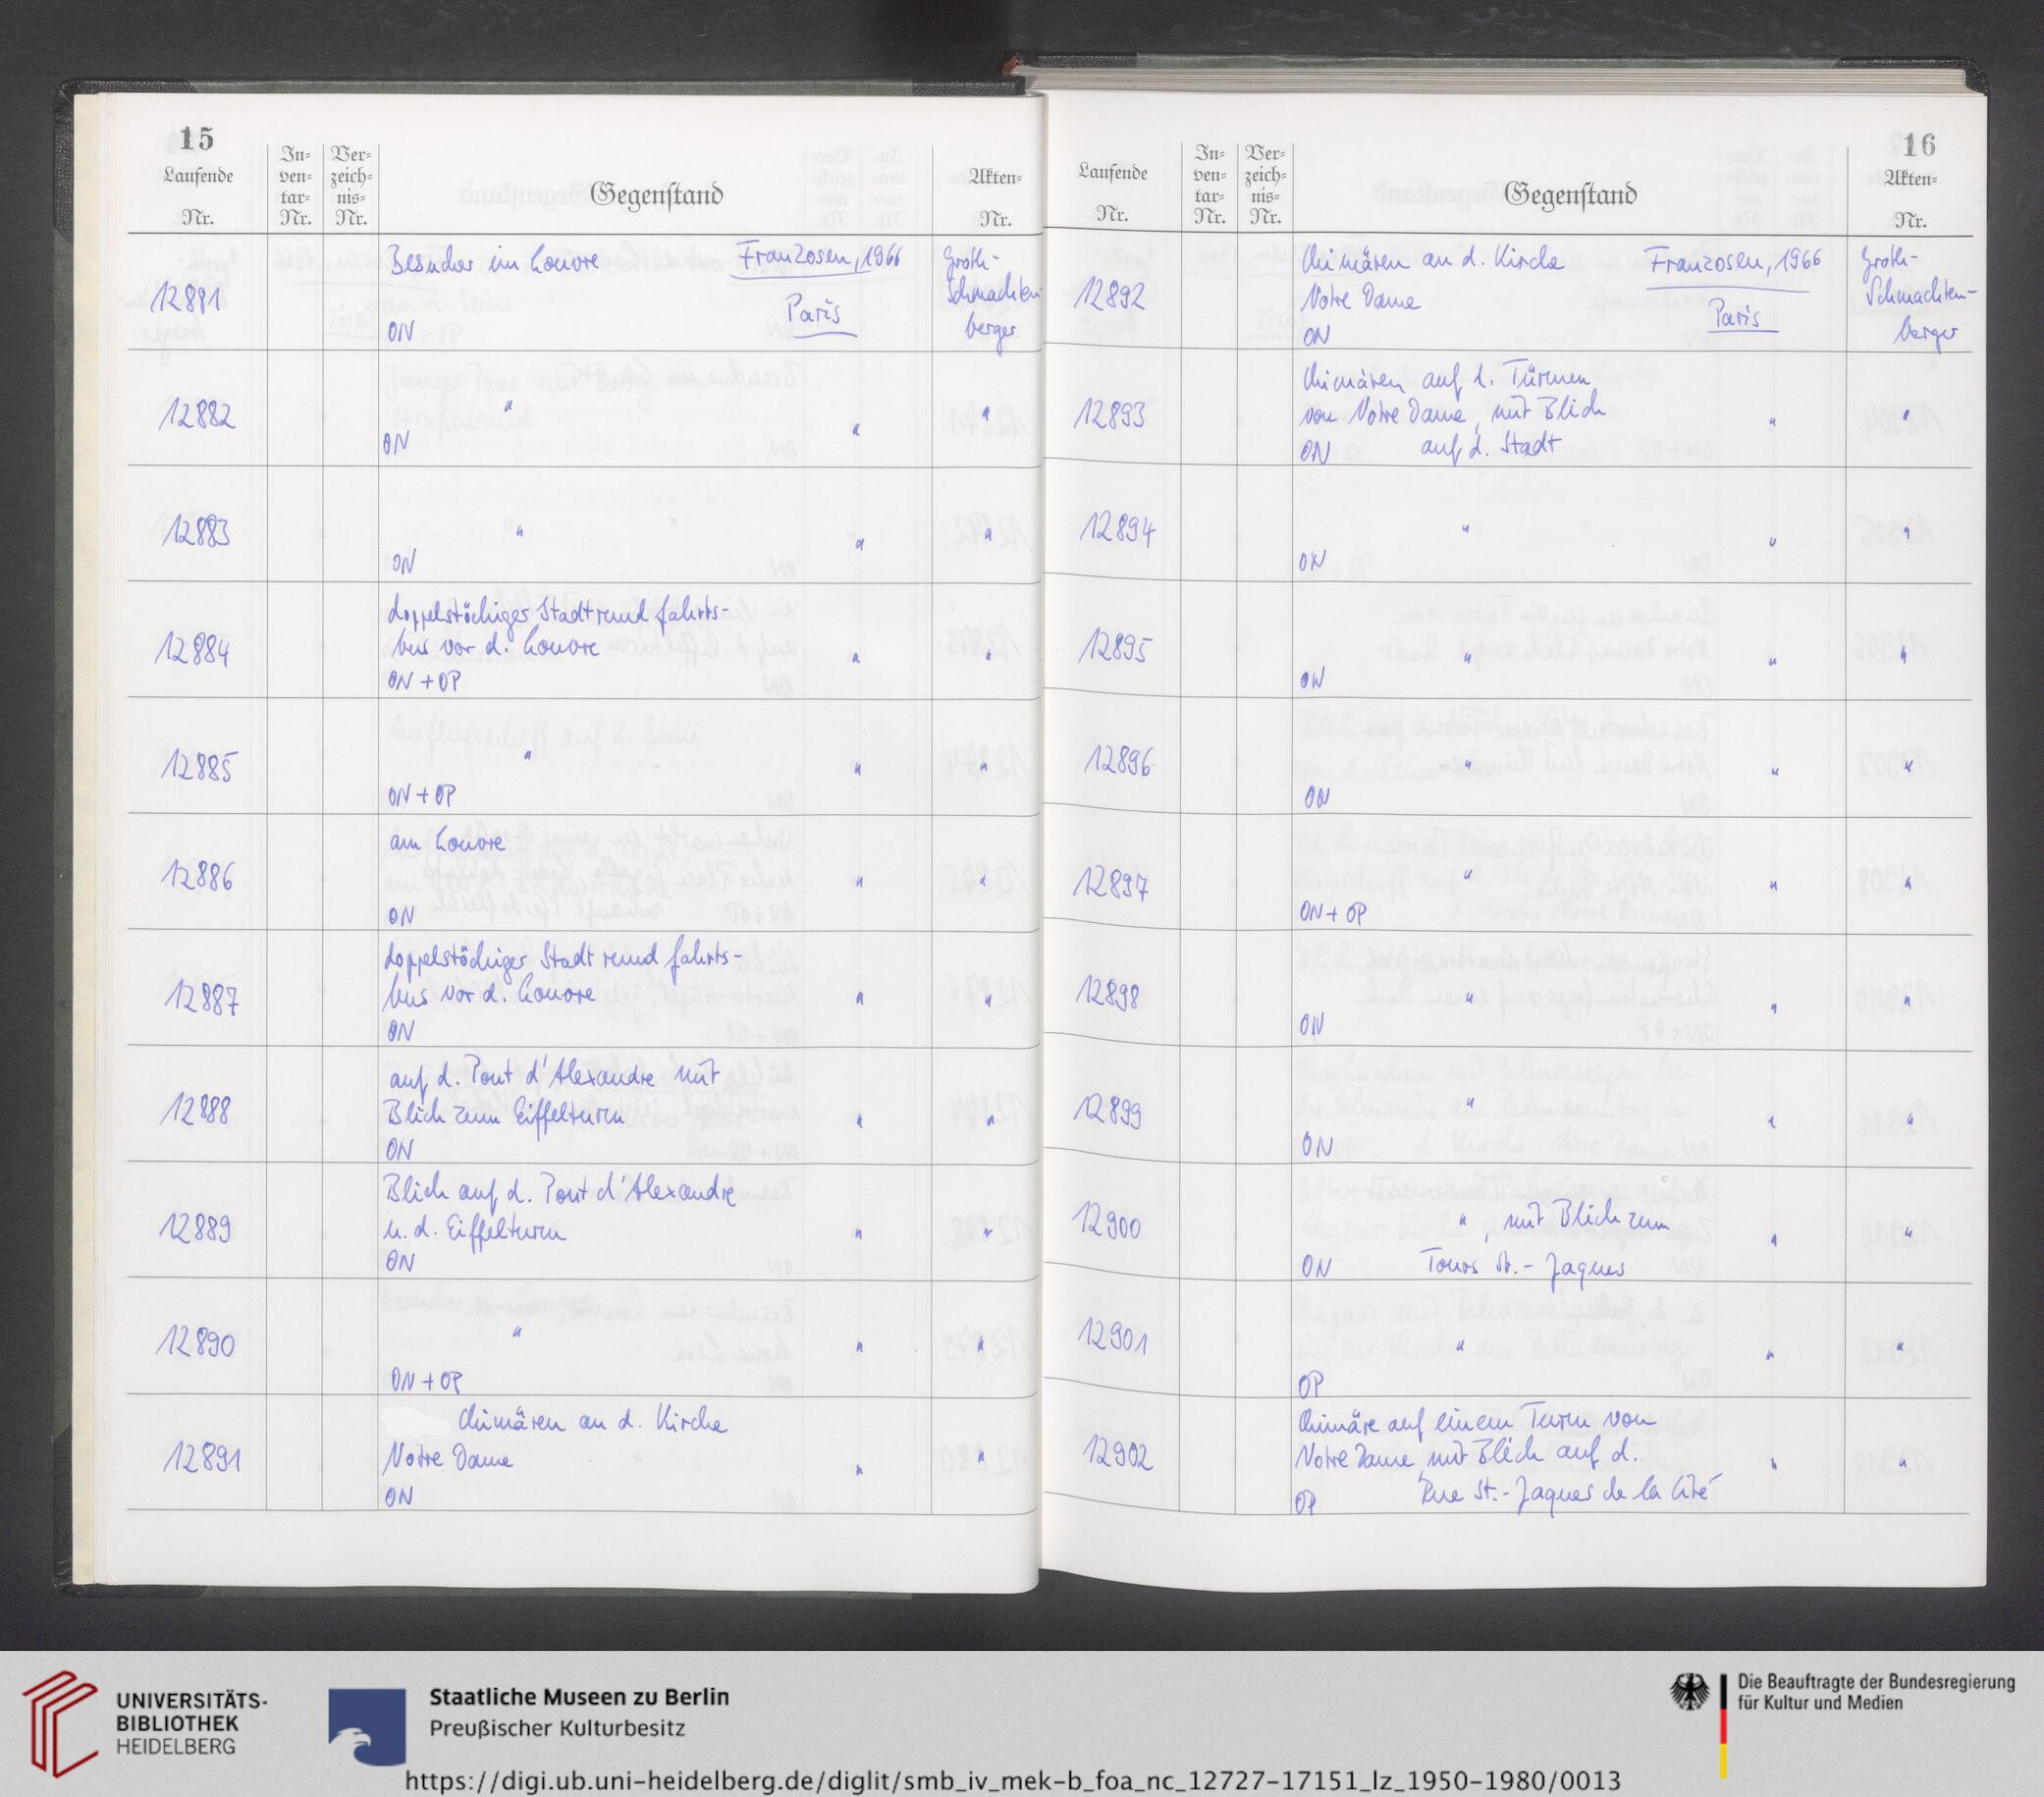 15
Laufende Nr.
In-ven-tar-Nr.
Ver-zeich-nis-Nr.
Gegenstand
Akten-Nr.
12881
Besucher im Louvre
Franzosen, 1966
Paris
ON
Groth-
Schmachten-
berger
12882
"
ON
"
"
12883
"
ON
"
"
12884
doppelstöckiger Stadtrundfahrts-
bus vor d. Louvre
ON + OP
"
"
12885
"
ON + OP
"
"
12886
am Louvre
ON
"
"
12887
doppelstöckiger Stadtrundfahrts-
bus vor d. Louvre
ON
"
"
12888
auf d. Pont d'Alexandre mit
Blick zum Eiffelturm
ON
"
"
12889
Blick auf d. Pont d'Alexandre
u. d. Eiffelturm
ON
"
"
12890
"
ON + OP
"
"
12891
Chimären an d. Kirche
Notre Dame
ON
"
"
16
Laufende Nr.
In-ven-tar-Nr.
Ver-zeich-nis-Nr.
Gegenstand
Akten-Nr.
12892
Chimären an d. Kirche
Notre Dame
ON
Franzosen, 1966
Paris
Groth-
Schmachten-
berger
12893
Chimären auf d. Türmen
von Notre Dame, mit Blick
ON auf d. Stadt
"
"
12894
"
ON
"
"
12895
"
ON
"
"
12896
"
ON
"
"
12897
"
ON + OP
"
"
12898
"
ON
"
"
12899
"
ON
"
"
12900
", mit Blick zum
ON Tours St.-Jaques
"
"
12901
"
OP
"
"
12902
Chimäre auf einem Turm von
Notre Dame, mit Blick auf d.
OP Rue St.-Jaques de la Cité
"
"
UNIVERSITÄTS-
BIBLIOTHEK
HEIDELBERG
Staatliche Museen zu Berlin
Preußischer Kulturbesitz
Die Beauftragte der Bundesregierung
für Kultur und Medien
https://digi.ub.uni-heidelberg.de/diglit/smb_iv_mek-b_foa_nc_12727-17151_lz_1950-1980/0013